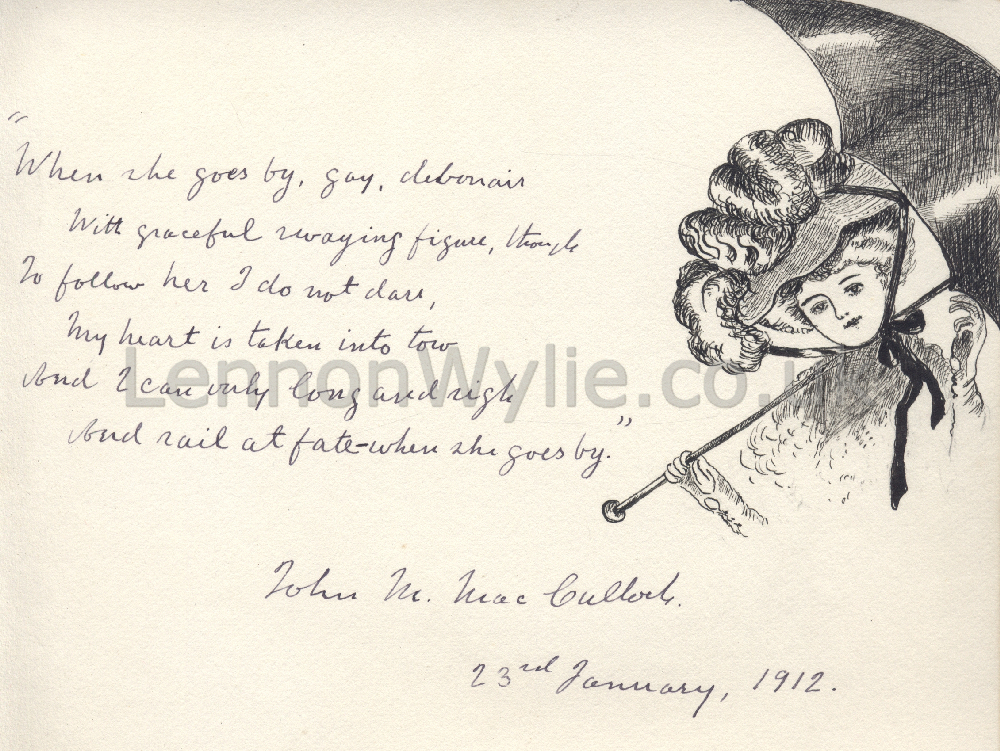 "
When she goes by, gay, debonair
With graceful swaying figure, though
To follow her I do not dare,
My heart is taken into tow
And I can only long and sigh
And rail at fate - when she goes by."
LennonWylie.co.uk
John M. MacCulloch.
23rd January, 1912.